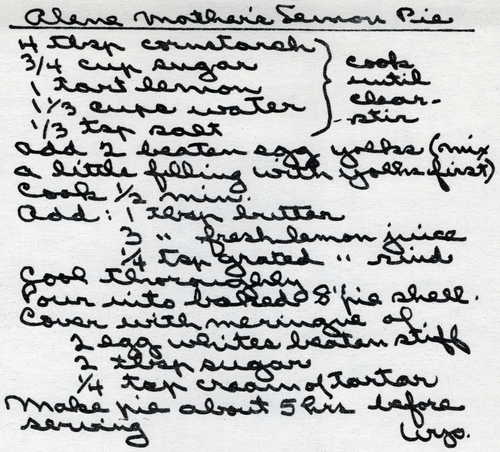 Alene Mother's Lemon Pie
4 tbsp cornstarch
3/4 cup sugar
1 tart lemon
1 1/3 cups water
1/3 tsp salt
} cook
until
clear-
stir
add 2 beaten egg yolks (mix
a little filling with yolks first)
Cook 1/2 min.
Add: 1 tbsp butter
3 " fresh lemon juice
1/4 tsp grated " rind
Cool thoroughly
Pour into baked 8" pie shell.
Cover with meringue of
2 egg whites beaten stiff
2 tbsp sugar
1/4 tsp cream of tartar
Make pie about 5 hrs before
serving